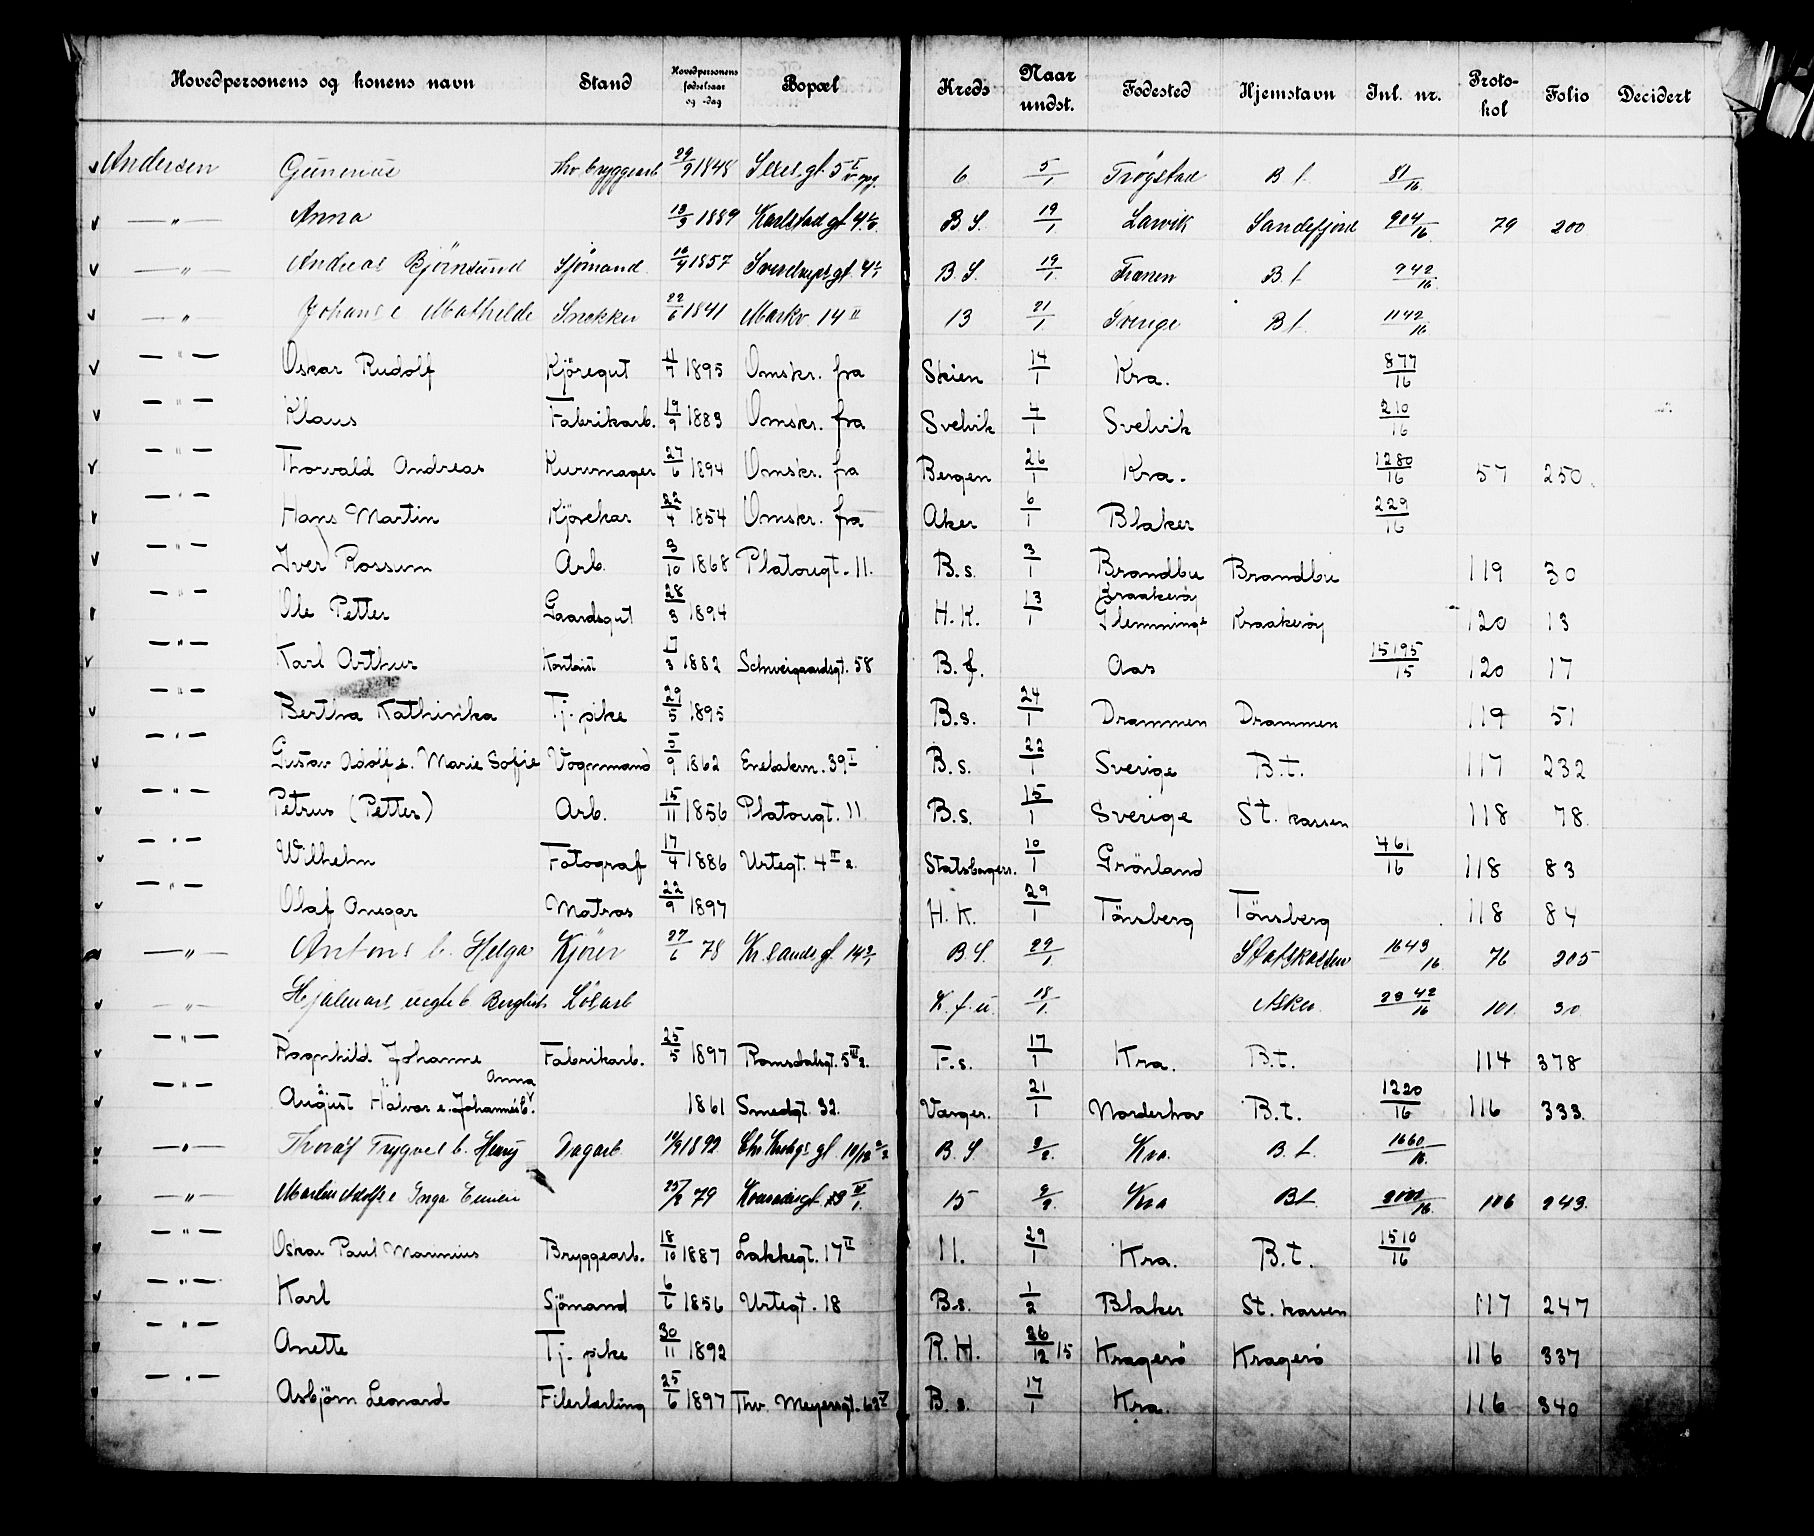 Hovedpersonens og konens navn Stand Hovedpersonens fødselsaar og -dag Bopæl Kreds Naar undst. Fødested Hjemstavn Inl. nr. Proto-kol Folio Decidert
Andersen Gunerius bryggearb 29/9 1848 gt. 5 6 5/1 Trøgstad B t. 81/16
—"— Anna 13/3 1889 Karlstad gt B S. 19/1 Larvik Sandefjord 904/16 79 200
—"— Andreas Bjørnsund Sjømand 1857 Sverdrups gt. B. S. 19/1 Franen B t. 942/16
—"— Johan e Mathilde Snekker 22/6 1841 Markv 14 II 13 21/1 Sverige B t. 1142/16
—"— Oskar Rudolf Kjöregut 4/7 1895 Omskr. fra Skien 14/1 Kra. 877/16
—"— Klaus Fabrikarb. 19/9 1883 Omskr. fra Svelvik 4/1 Svelvik 210/16
—"— Thorvald Andreas Kurvmager 27/6 1894 Omskr. fra Bergen 26/1 Kra. 1280/16 57 250
—"— Hans Martin Kjörekar 22/4 1854 Omskr. fra Aker 6/1 Blaker 229/16
—"— Iver Rossum Arb. 3/10 1868 Platougt. 11. B. s. 3/1 Brandbu Brandbu 119 30
—"— Ole Petter Gaardsgut 28/3 1894 H. K. 13/1 Kraakeröy Glemminge Kraakeröy 120 13
—"— Karl Arthur Kontorist 1882 Schweigaardsgt. 58 B. f. Aas 15195/15 120 17
—"— Bertha Kathinka Tj. pike 29/5 1895 B. s. 24/1 Drammen Drammen 119 51
—"— Gustav Adolf e. Marie Sofie Vognmand 5/9 1862 Enebakvn. 39 I B. s. 22/1 Sverige B. t. 117 232
—"— Petrus (Petter) Arb. 15/11 1856 Platougt. 11 B. s. 15/1 Sverige St. kassen 118 78
—"— Wilhelm Fotograf 17/4 1886 Urtegt. 4 II 2. Statsborgers. 10/1 Grönland 461/16 118 83
—"— Olaf Ansgar Matros 22/9 1897 H. K. 29/1 Tönsberg Tönsberg 118 84
—"— Anton b. Helga Kjörer 27/6 78 Kr.lands gt. B S. 29/1 Statskassen 1643/16 76 205
—"— Hjalmar Løsarb K. f. u. 18/1 Asker 2342/16 101 30
—"— Ragnhild Johanne Fabrikarb. 25/5 1897 Romsdalsgt. 5 F. s. 17/1 Kra. B. t. 114 378
—"— August Halvor e. Johanne Anna 1861 Smedgt. 32. Værger. 21/1 Norderhov B. t. 1220/16 116 333
—"— Thoralf Trygve b. Henry Dagarb 1892 gt. B. S 2/2 Kra. B. t. 1660/16
—"— Martin Adolf e Inga 79 gt. 15 Kra B t. 106 243
—"— Oskar Paul Marinius Bryggearb. 18/10 1887 Lakkegt. 17 II 11. 29/1 Kra. B. t. 1510/16
—"— Karl Sjömand 6/6 1856 Urtegt. 18 B. s. 1/2 Blaker St. kassen 117 247
—"— Anette Tj. pike 30/11 1892 R. H. 26/12 15 Kragerö Kragerö 116 337
—"— Asbjörn Leonard Filerlærling 25/6 1897 Thv. Meyersgt. B. s. 17/1 Kra. 116 340